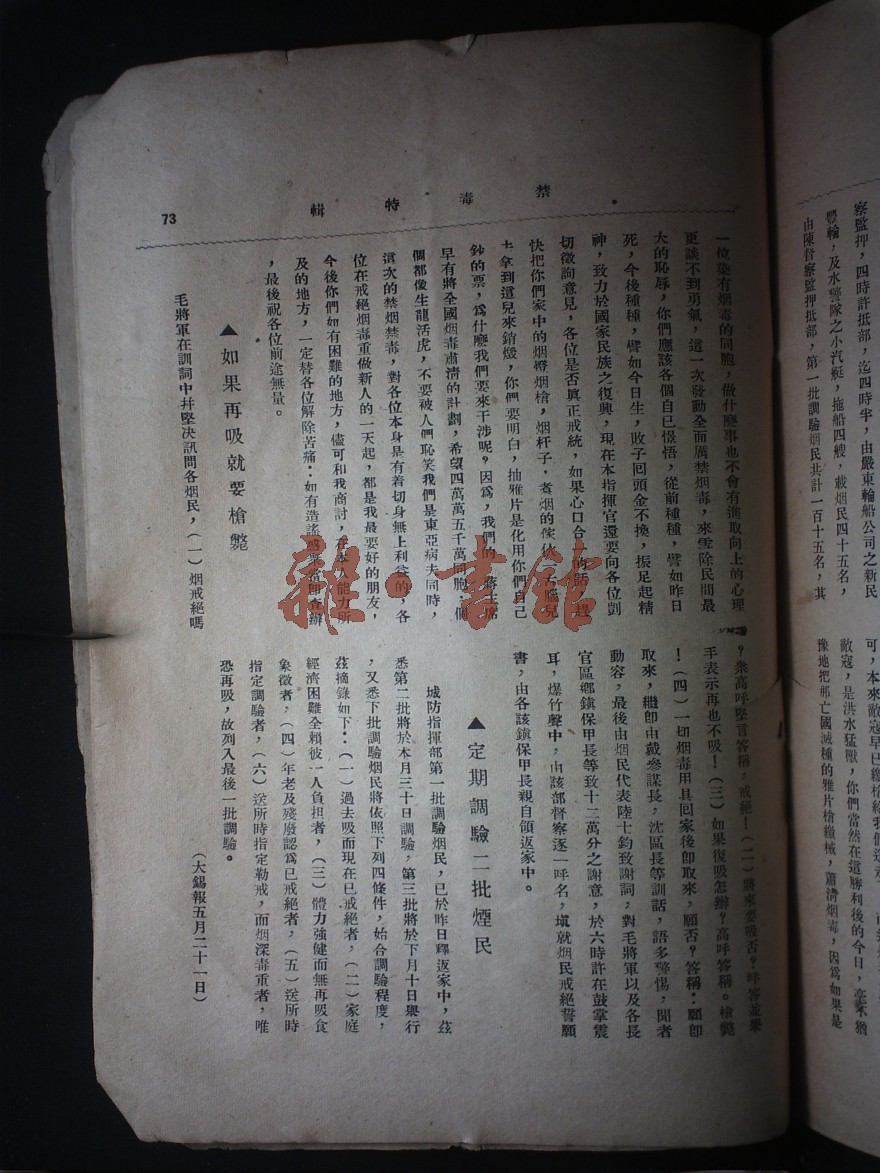 察監押，四時許抵部，迄四時半，由嚴東輪船公司之新民
豐輪，及水警隊之小汽艇，拖船四艘，載烟民四十五名，
由陳督察監押抵部，第一批調驗烟民共計一百十五名，其
可，本來敵寇早已繳槍給我們
敵寇，是洪水猛獸，你們當然在這勝利後的今日，毫不猶
豫地把那亡國滅種的雅片槍繳械，肅清烟毒，因爲如果是
禁毒特輯
73
一位染有烟毒的同胞，做什麽事也不會有進取向上的心理
更談不到勇氣，這一次發動全面厲禁烟毒，來雪除民間最
大的恥辱，你們應該各個自己憬悟，從前種種，譬如昨日
死，今後種種，譬如今日生，敗子回頭金不換，振足起精
神，致力於國家民族之復興，現在本指揮官還要向各位剴
切徵詢意見，各位是否眞正戒統，如果心口合一的話，趕
快把你們家中的烟燈烟槍，烟杆子，煑烟的傢伙一古腦兒
土拿到這兒來銷燬，你們要明白，抽雅片是化用你們自己
鈔的票，爲什麽我們要來干涉呢？因爲，我們的 蔣主席
早有將全國烟毒肅清的計劃，希望四萬萬五千萬同胞，個
個都像生龍活虎，不要被人們恥笑我們是東亞病夫同時，
這次的禁烟禁毒，對各位本身是有着切身無上利益的，各
位在戒絕烟毒重做新人的一天起，都是我最要好的朋友，
今後你們如有困難的地方，儘可和我商討，在本人能力所
及的地方，一定替各位解除苦痛：如有造謠惑衆當卽查辦
，最後祝各位前途無量。
▲如果再吸就要槍斃
毛將軍在訓詞中幷堅決訊問各烟民，（一）烟戒絕嗎
？衆高呼堅言答稱，戒絕！（二）將來要吸否？呼答並舉
手表示再也不吸！（三）如果復吸怎辦？高呼答稱。槍斃
！（四）一切烟毒用具回家後卽取來，願否？答稱：願卽
取來，繼卽由戴參謀長，沈區長等訓話，語多警惕，聞者
動容，最後由烟民代表陸十鈞致謝詞，對毛將軍以及各長
官區鄉鎭保甲長等致十二萬分之謝意，於六時許在鼓掌震
耳，爆竹聲中，由該部督察逐一呼名，塡就烟民戒絕誓願
書，由各該鎭保甲長親自領返家中。
▲定期調驗二批煙民
城防指揮部第一批調驗烟民，已於昨日釋返家中，茲
悉第二批將於本月三十日調驗，第三批將於下月十日舉行
，又悉下批調驗烟民將依照下列四條件，始合調驗程度，
茲摘錄如下：（一）過去吸而現在已戒絕者，（二）家庭
經濟困難全賴彼一人負担者，（三）體力強健而無再吸食
象徵者，（四）年老及殘廢認爲已戒絕者，（五）送所時
指定調驗者，（六）送所時指定勒戒，而烟深毒重者，唯
恐再吸，故列入最後一批調驗。
（大錫報五月二十一日）
雜·書館